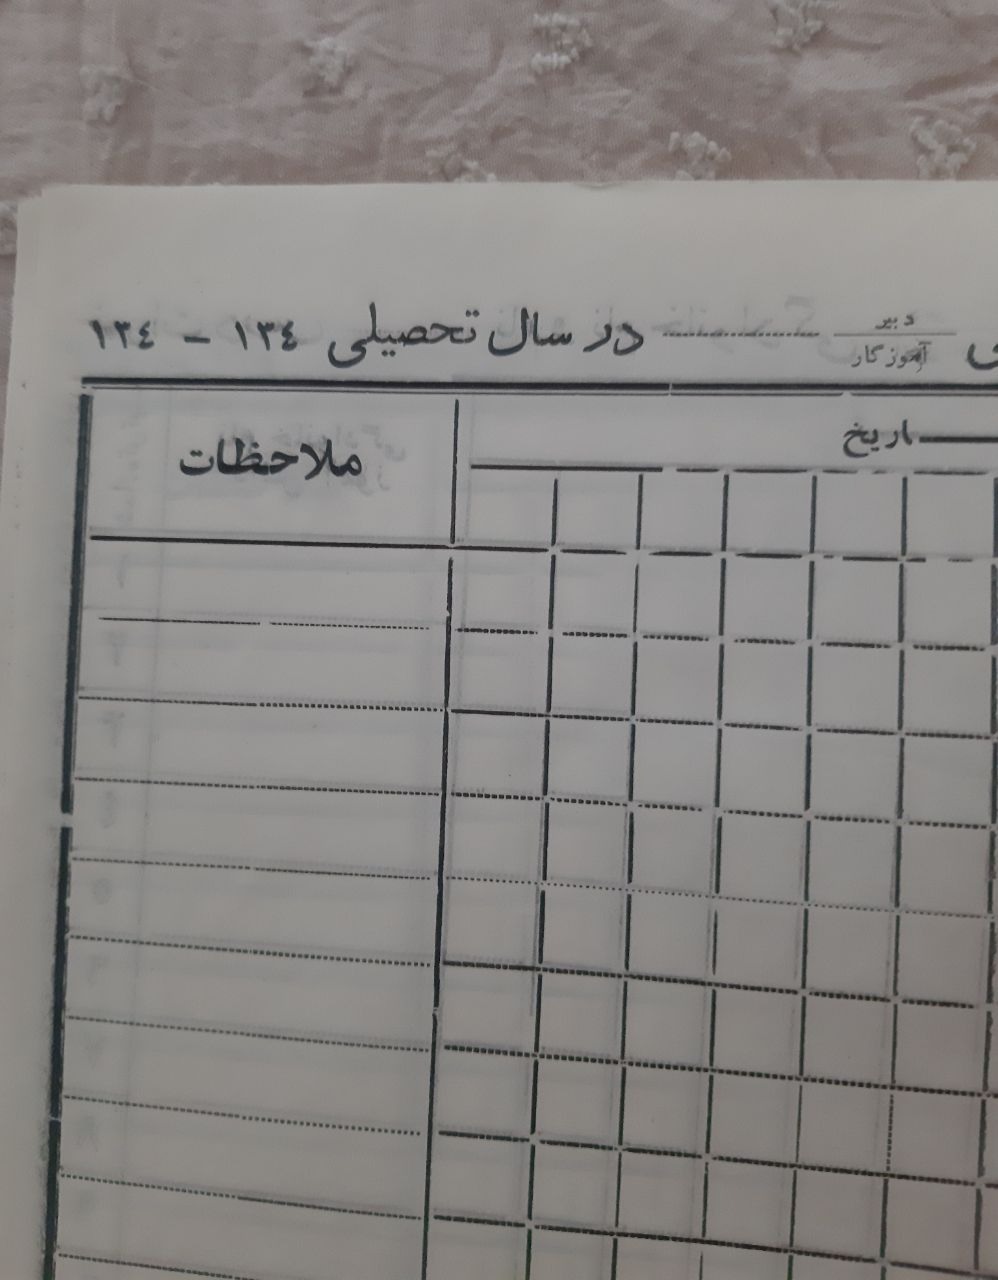 دبیر
آموزگار ........................ در سال تحصیلی ۱۳٤ – ۱۳٤
اریخ
ملاحظات